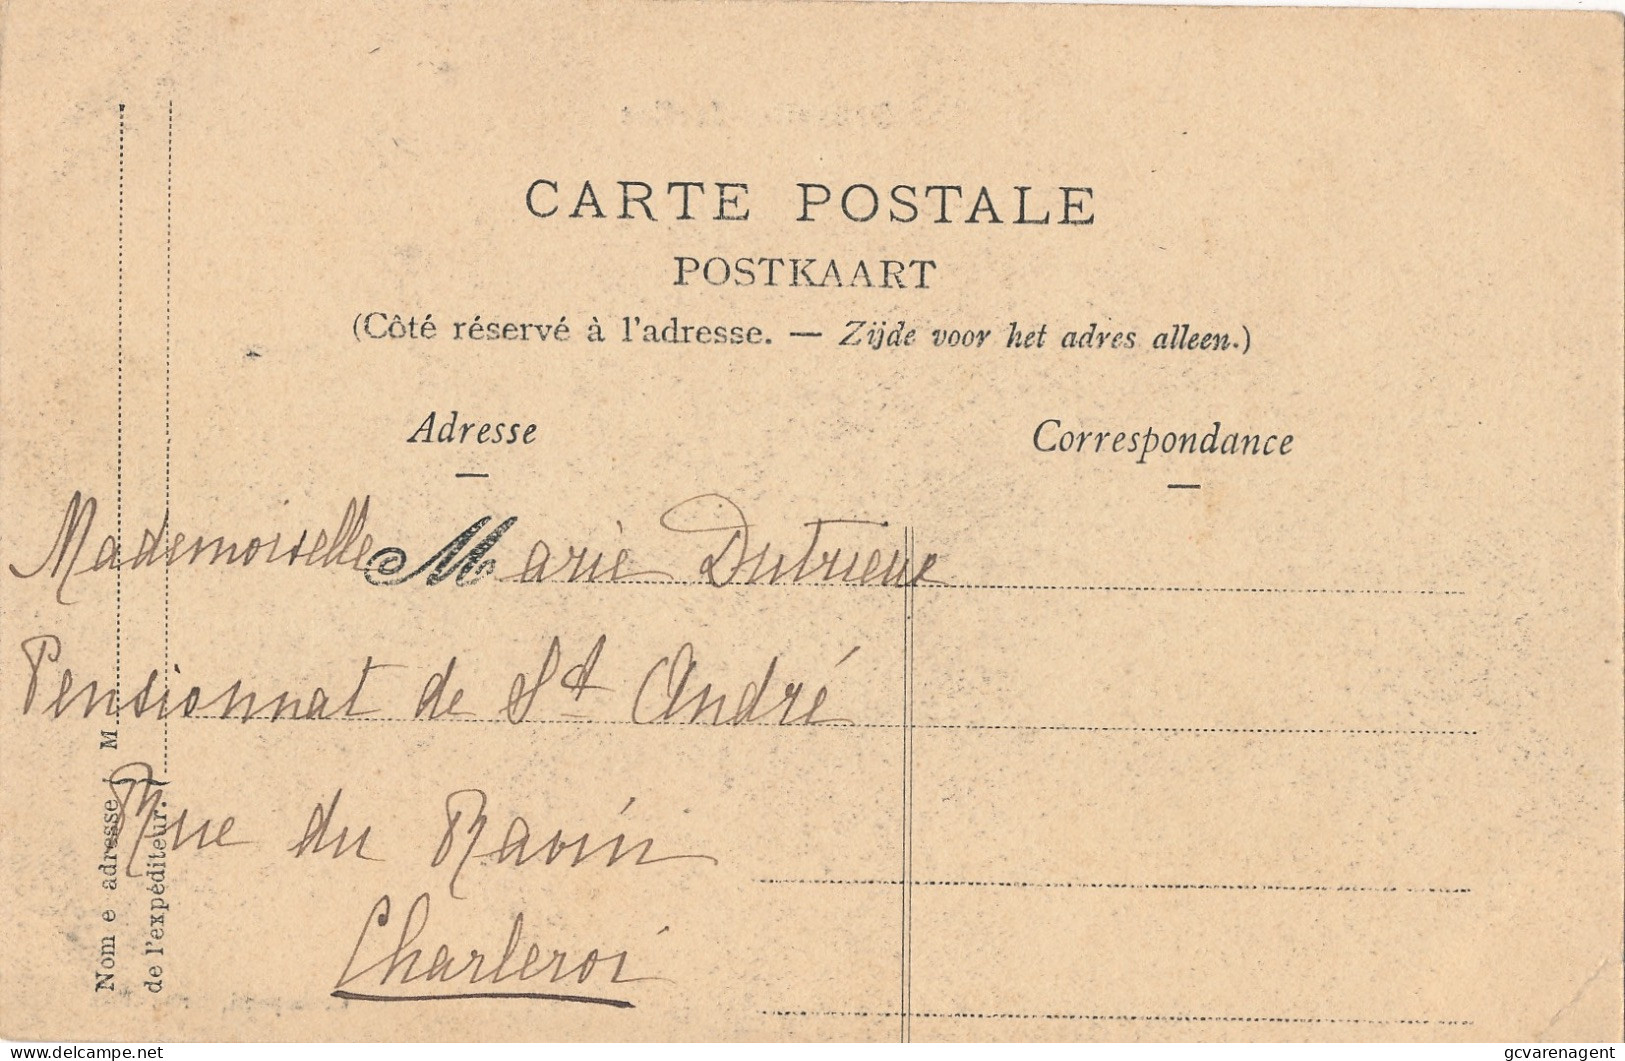 CARTE POSTALE
POSTKAART
(Côté réservé à l'adresse. — Zijde voor het adres alleen.)
Adresse
Correspondance
Mademoiselle Marie Dutrieux
Pensionnat de St André
Rue du Ravin
Charleroi
Nom e adresse M
de l'expéditeur.
delcampe.net
gcvarenagent